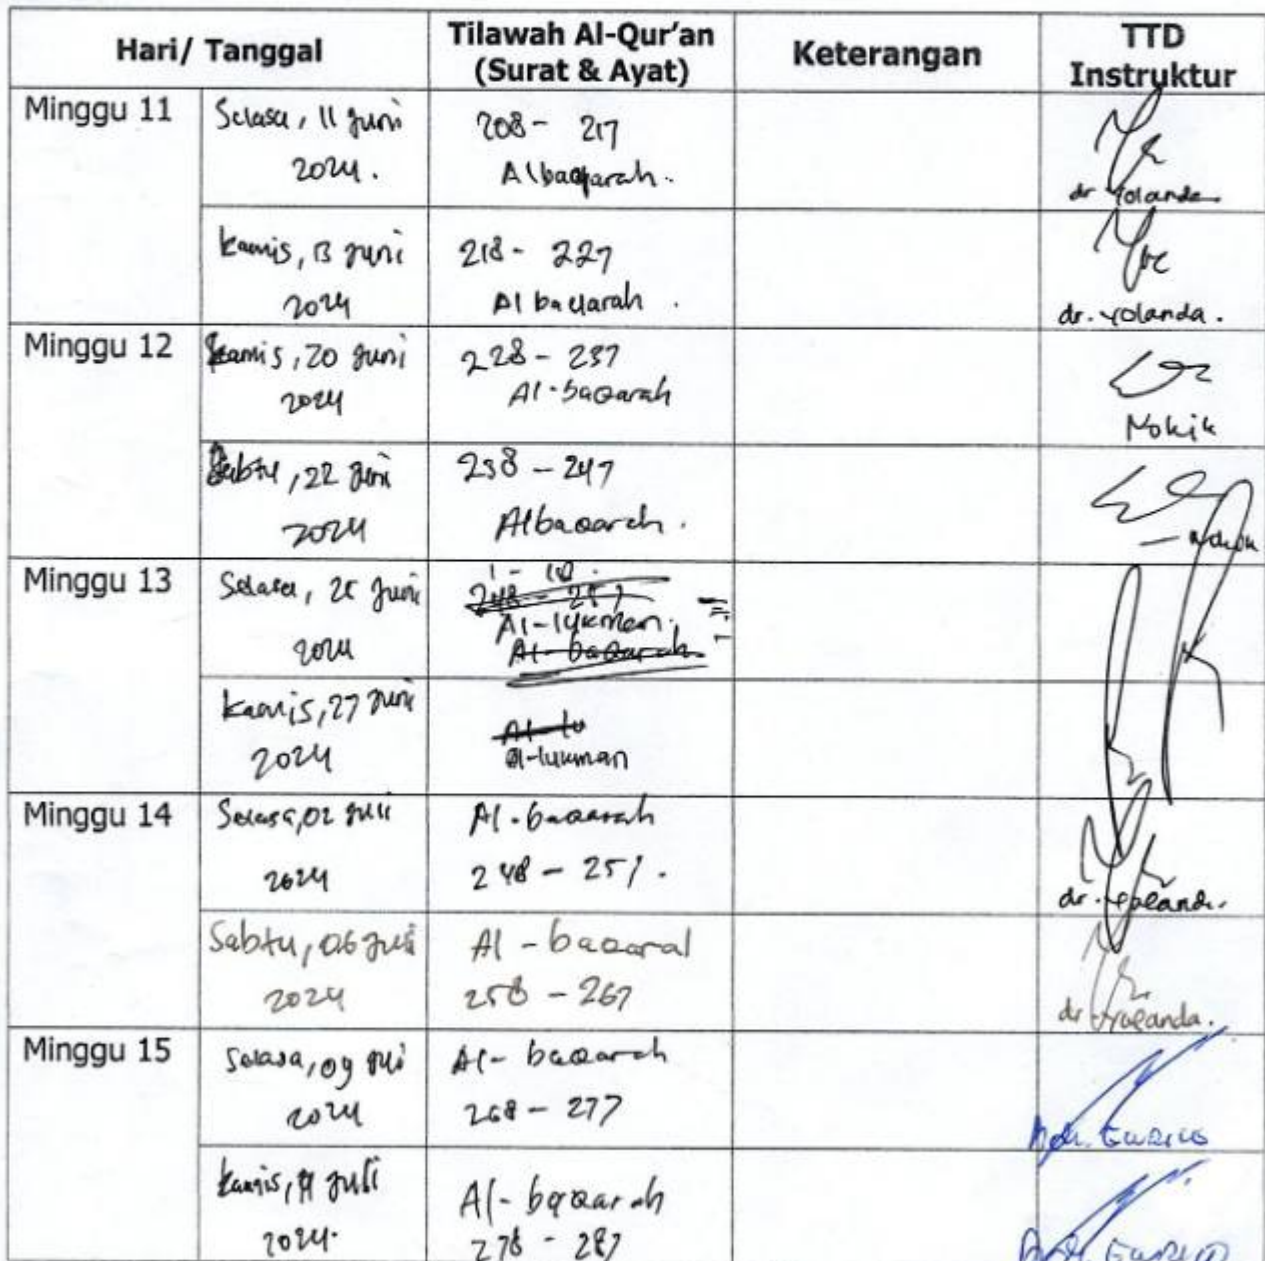 Hari/ Tanggal
Tilawah Al-Qur'an
(Surat & Ayat)
Keterangan
TTD
Instruktur
Minggu 11
Selasa, 11 Juni
2024.
208 - 217
Albaqarah.
dr Yolanda
Kamis, 13 Juni
2024
218 - 227
Al baqarah.
dr. Yolanda.
Minggu 12
Kamis, 20 Juni
2024
228 - 237
Al-baqarah
Sabtu, 22 Juni
2024
238 - 247
Albaqarah.
Minggu 13
Selasa, 25 Juni
2024
1 - 10.
248 - 257
Al-lukman.
Al-baqarah
Kamis, 27 Juni
2024
Al-lu
al-lukman
Minggu 14
Selasa, 02 Juli
2024
Al-baqarah
248 - 257.
dr. Yolanda.
Sabtu, 06 Juli
2024
Al-baqarah
258 - 267
dr Yolanda.
Minggu 15
Selasa, 09 Juli
2024
Al-baqarah
268 - 277
Kamis, 11 Juli
2024.
Al-baqarah
278 - 287